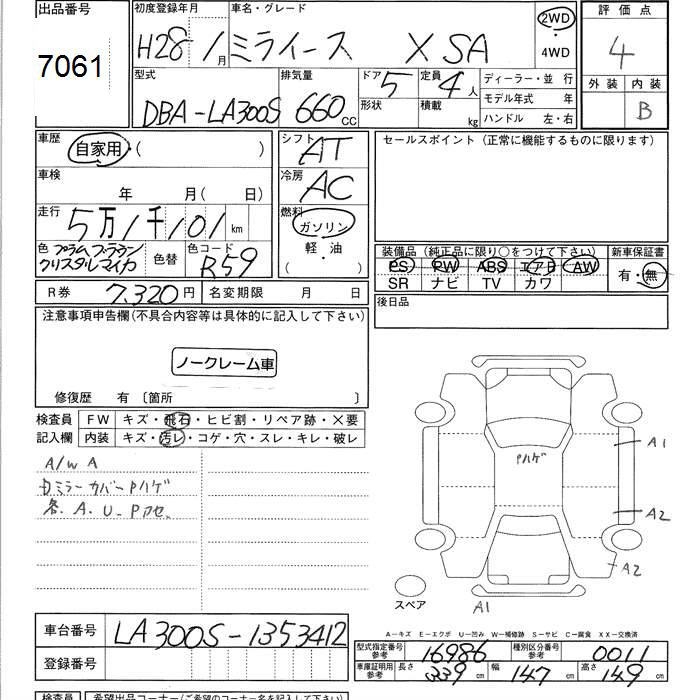 出品番号 7061
初度登録年月 H28 / 1月
車名・グレード ミライース X SA
2WD ・ 4WD
評価点 4
外装 内装 B
型式 DBA-LA300S
排気量 660cc
ドア 5 形状
定員 4人 積載 kg
ディーラー・並 行
モデル年式 年
ハンドル 左・右
車歴 自家用・( )
車検 年 月( 日)
走行 5万1千101km
色 プラムブラウンクリスタルマイカ
色替
色コード R59
シフト AT
冷房 AC
燃料 ガソリン
軽・油
( )
セールスポイント (正常に機能するものに限ります)
装備品 (純正品に限り○をつけて下さい)
PS PW ABS エアB AW
SR ナビ TV カワ
新車保証書 有・無
後日品
R券 7,320円
名変期限 月 日
注意事項申告欄(不具合内容等は具体的に記入して下さい)
ノークレーム車
修復歴 有 〔箇所 〕
検査員記入欄
FW キズ・飛石・ヒビ割・リペア跡・×要
内装 キズ・汚レ・コゲ・穴・スレ・キレ・破レ
A/W A
ミラーカバーPハゲ
各. A. U. P
Pハゲ
A1
A2
A2
A1
スペア
A-キズ E-エクボ U-凹み W-補修跡 S-サビ C-腐食 XX-交換済
車台番号 LA300S-1353412
登録番号
型式指定番号 参考 16986
種別区分番号 参考 0011
車庫証明用 参考 長さ 339cm 幅 147cm 高さ 149cm
検査員
希望出品コーナー(ご希望のコーナー名を記入して下さい)